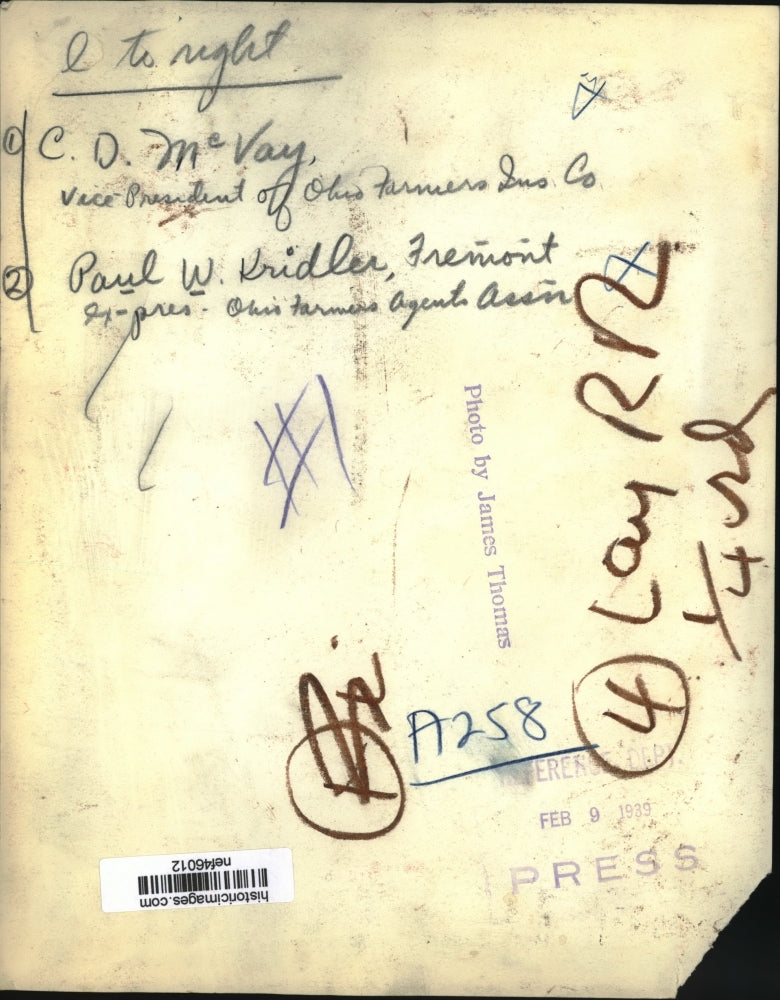 l to right
① C. D. McVay,
Vice-President of Ohio Farmers Ins. Co
② Paul W. Kridler, Fremont
ex-pres - Ohio Farmers Agents Assn
Photo by James Thomas
④ Lay RR
A258
FEB 9 1939
PRESS
historicimages.com
nef46012